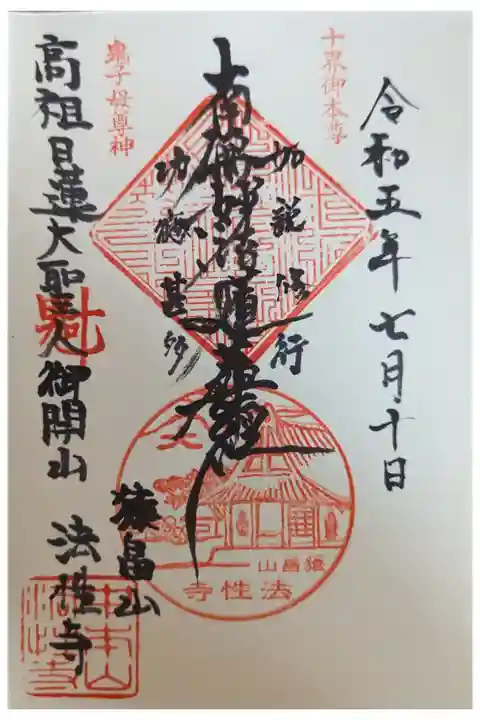 令和五年七月十日
十界御本尊
如説修行
南無妙法蓮華経
功徳甚多
鬼子母尊神
猿畠山
高祖日蓮大聖人御開山
法性寺
猿畠山
法性寺